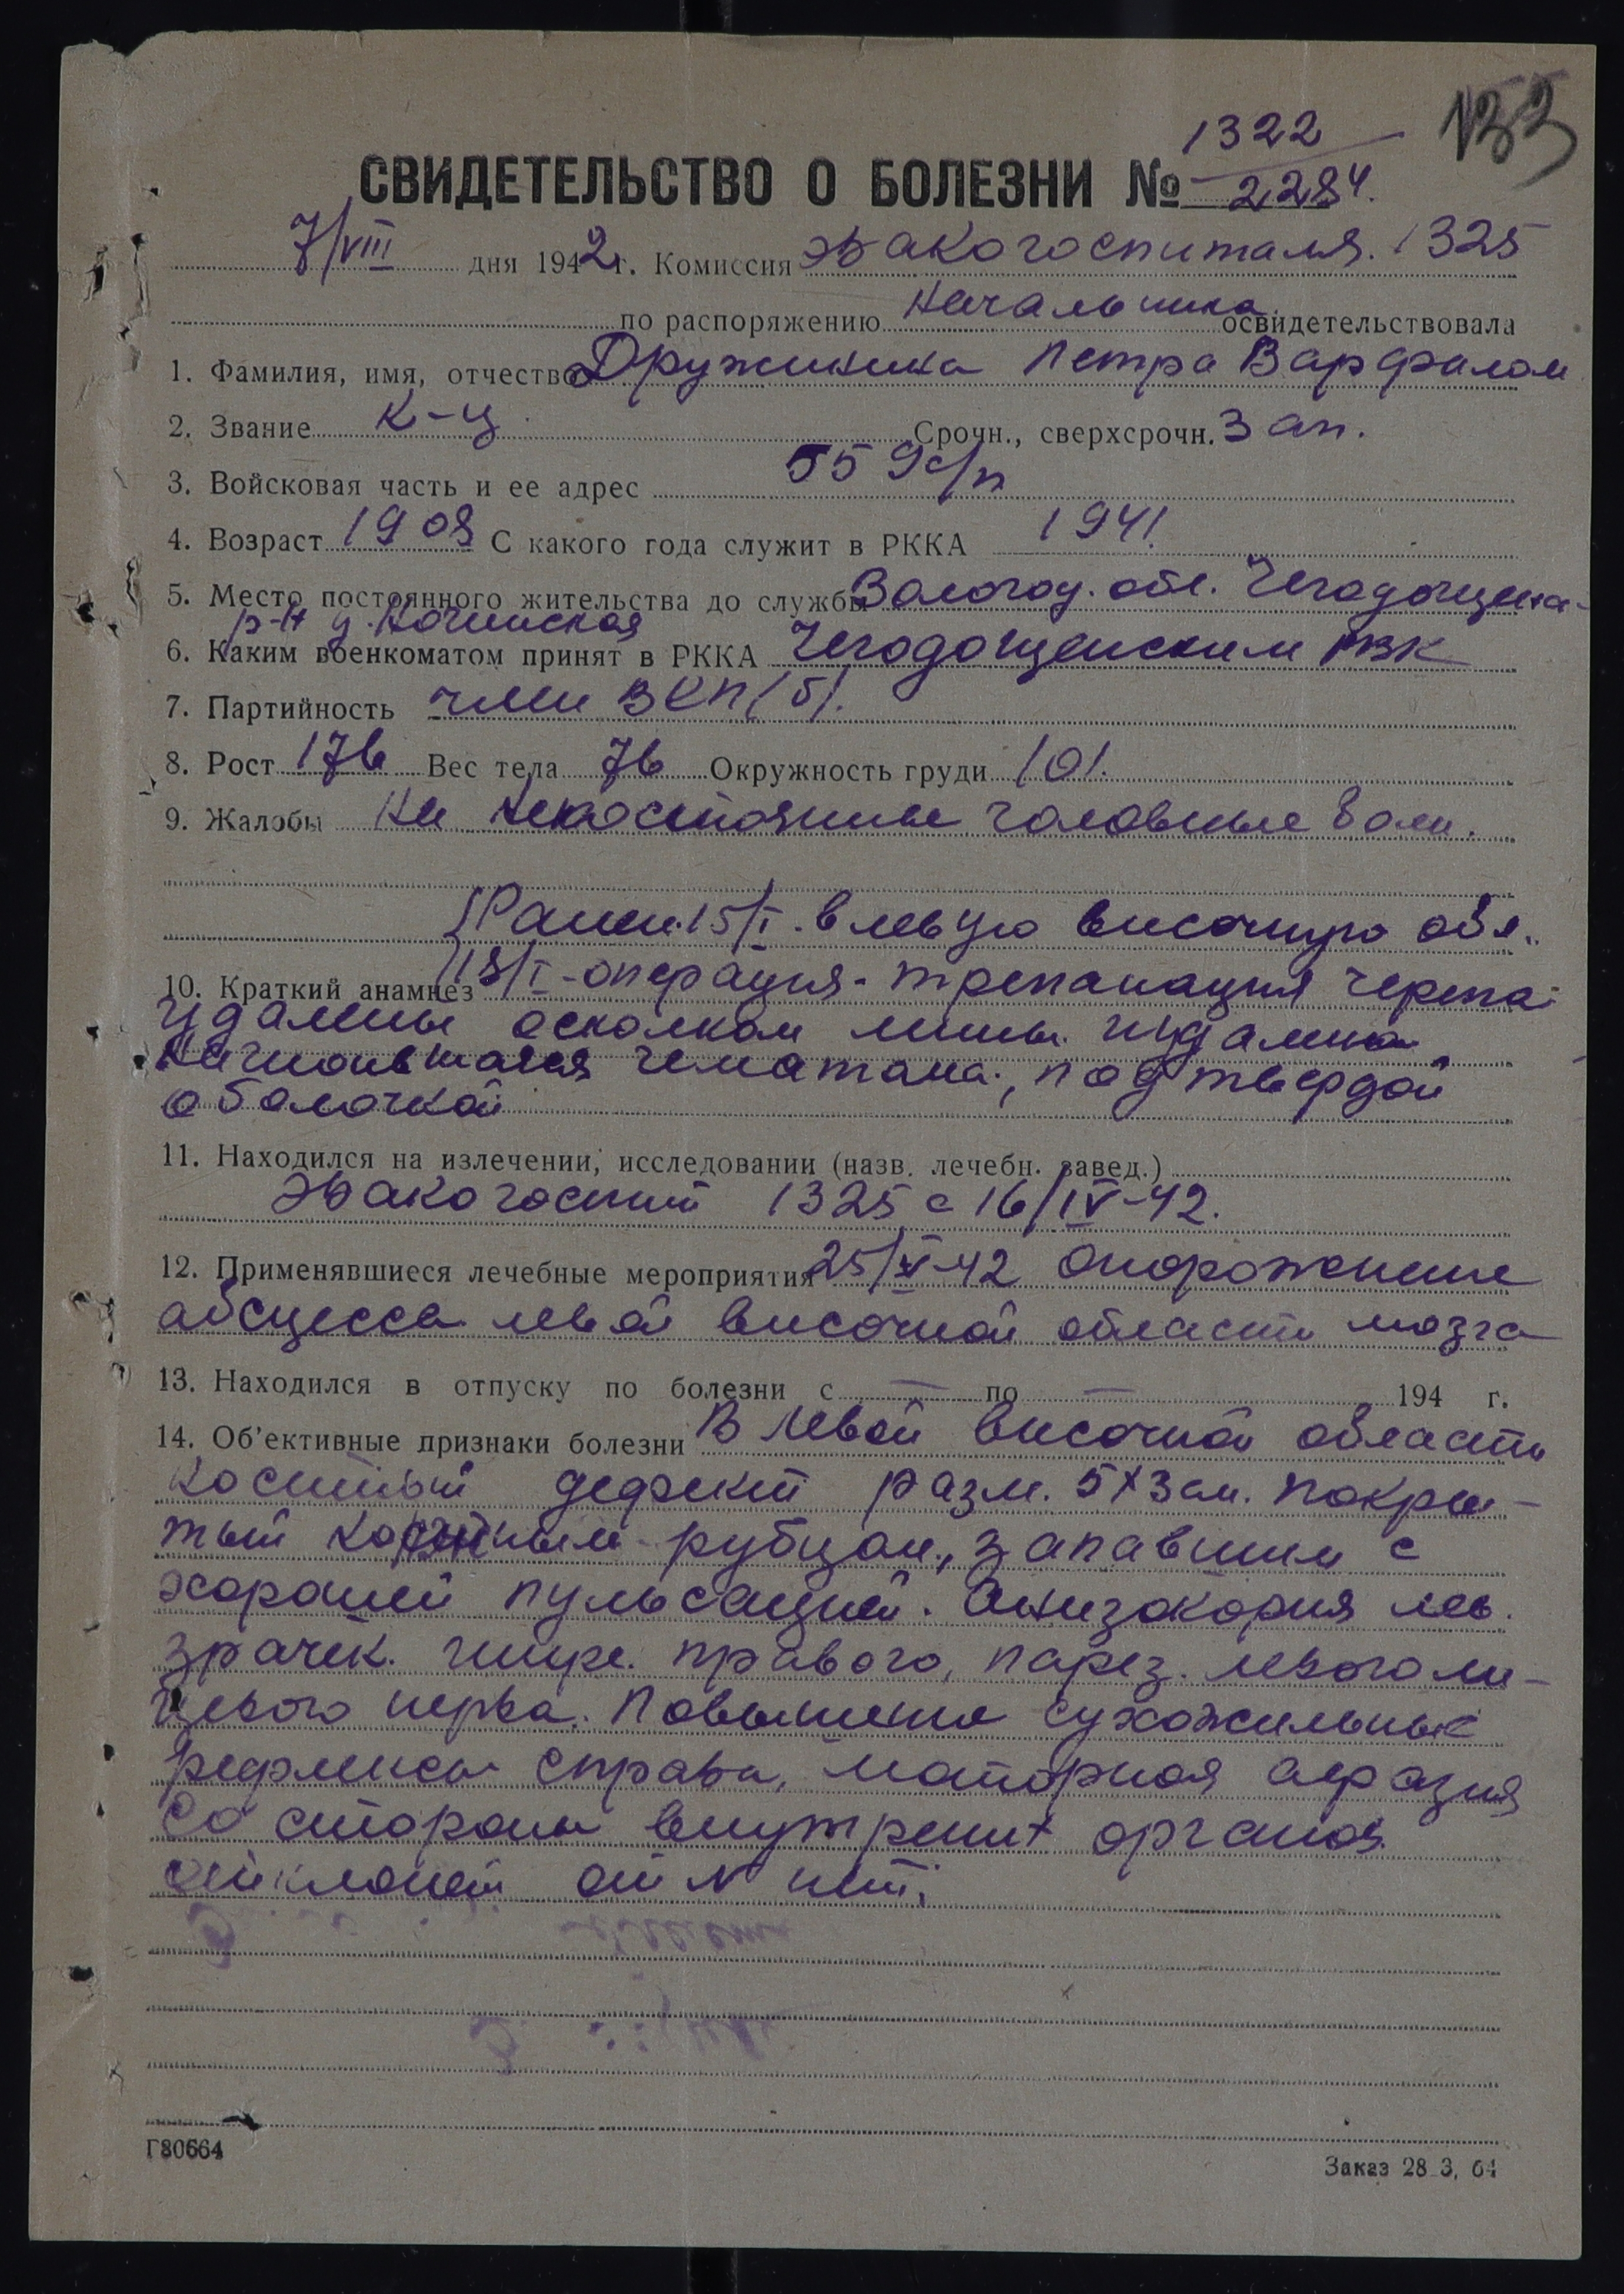 133
1322
СВИДЕТЕЛЬСТВО О БОЛЕЗНИ № 2284.
7/VIII дня 1942 г. Комиссия эвакогоспиталя. 1325
по распоряжению Начальника освидетельствовала
1. Фамилия, имя, отчество Дружинина Петра Варфалом
2. Звание к-ц Срочн., сверхсрочн. Зап.
3. Войсковая часть и ее адрес 559 с/п
4. Возраст 1908 С какого года служит в РККА 1941.
5. Место постоянного жительства до службы Вологод. обл. Чегодощенс-
р-н д.
6. Каким военкоматом принят в РККА Чегодощенским РВК
7. Партийность член ВКП(б).
8. Рост 176 Вес тела 76 Окружность груди 101.
9. Жалобы На непостоянные головные боли.
Ранен 15/I. в левую височную обл.
10. Краткий анамнез 18/I - операция - трепанация черепа
удалены осколком мины. удалена
гематома, под твердой
оболочкой
11. Находился на излечении, исследовании (назв. лечебн. завед.)
Эвакогоспит 1325 с 16/IV-42.
12. Применявшиеся лечебные мероприятия 25/VI-42 опорожнение
абсцесса левой височной области мозга
13. Находился в отпуску по болезни с — по — 194 г.
14. Об'ективные признаки болезни В левой височной области
костный дефект разм. 5х3 см. покры-
тый рубцом, запавшим с
хорошей пульсацией. Анизокория лев.
зрачек. шире. правого, парез. левого ли-
цевого нерва. Повышение сухожильные
рефлексы справа, моторная афазия
Со стороны внутренних органов
отклонен от N нет.
Г80664
Заказ 28 3, 64